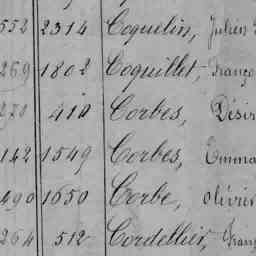 552 2314 Coquelin, Julien
269 1802 Coquillet, Franço
270 410 Corbes, Désir
142 1549 Corbes, Emma
490 1650 Corbe, olivier
264 512 Cordellier, Franç